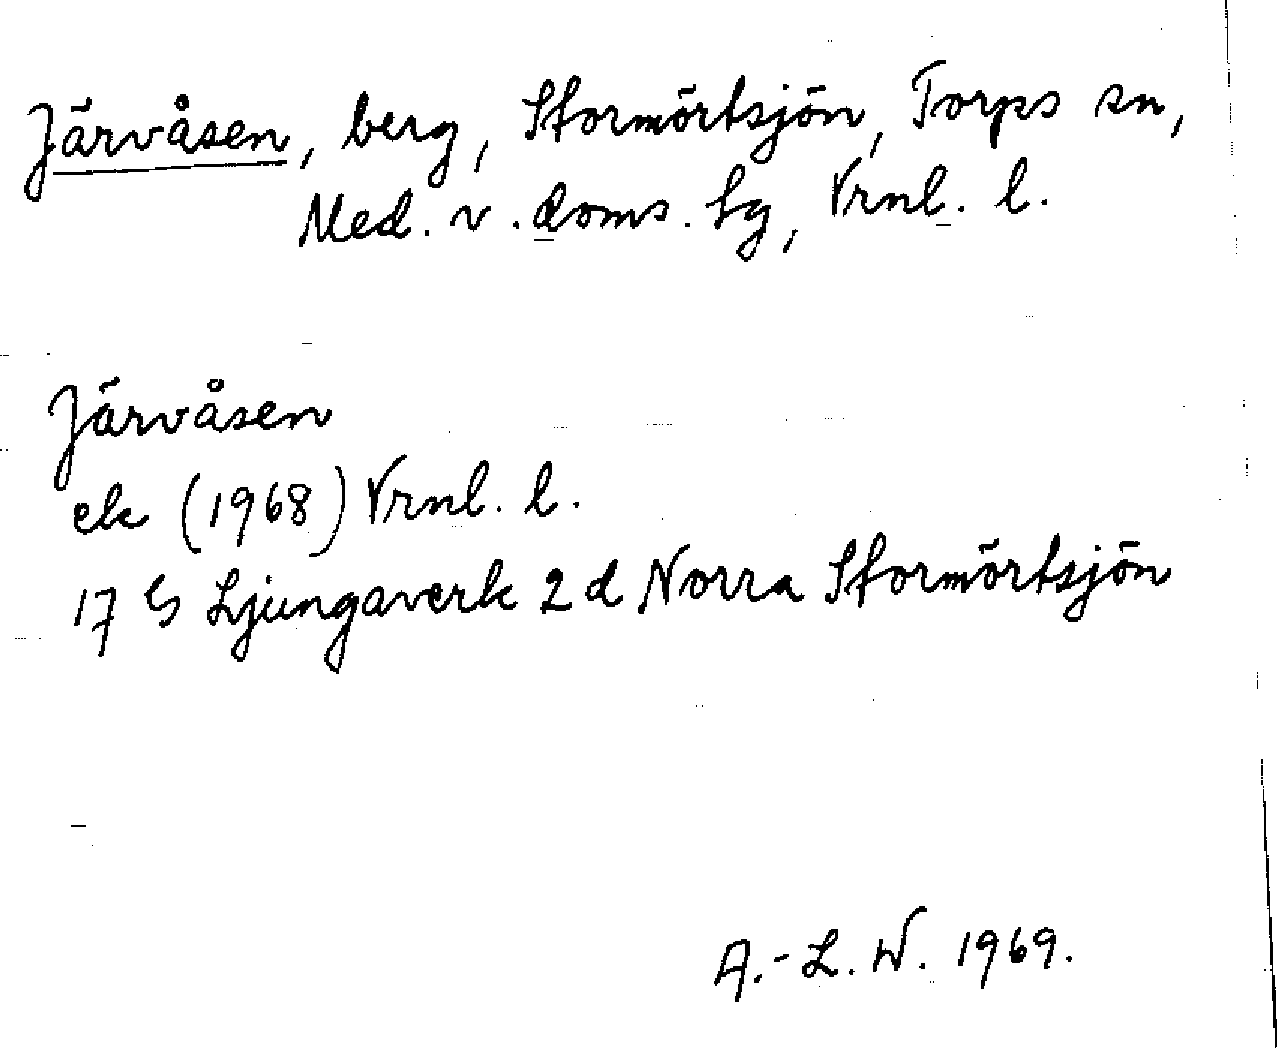 Järvåsen, berg, Stormörtsjön, Torps sn,
Med. v. doms. hg, Vrnl. l.
Järvåsen
ek (1968) Vrnl. l.
17 G Ljungaverk 2 d Norra Stormörtsjön
A.-L. W. 1969.